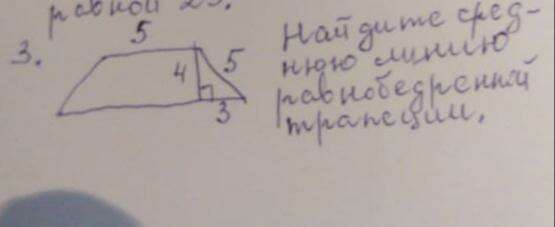 равной 25.
3.
5
4
5
3
Найдите сред-
нюю линию
равнобедренной
трапеции.